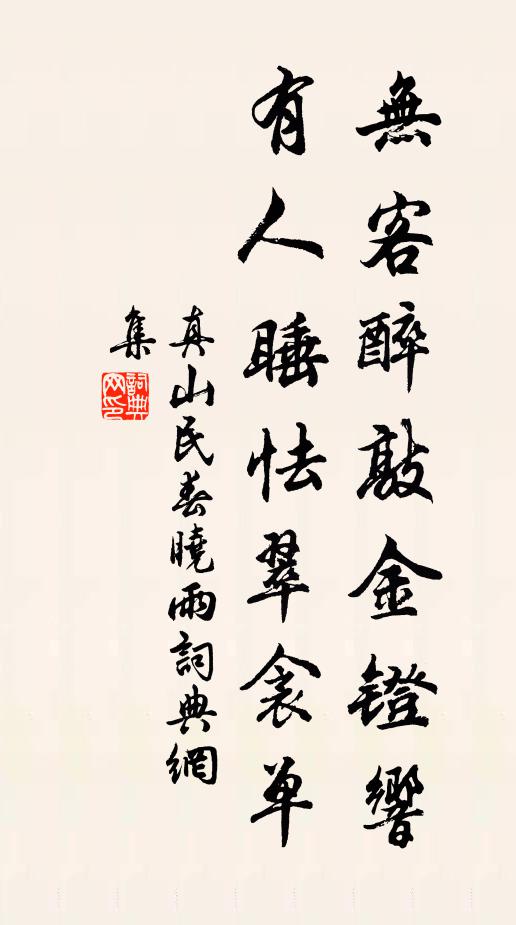 無客醉敲金镫響
有人睡怯翠衾单
真山民春曉雨詞典網
集
詞典
网印